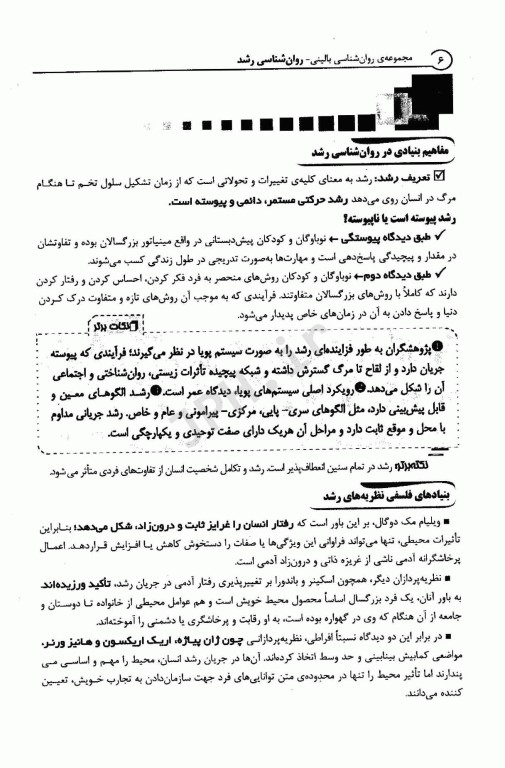 ۶ مجموعه‌ی روان‌شناسی بالینی- روان‌شناسی رشد
مفاهیم بنیادی در روان‌شناسی رشد
تعریف رشد: رشد به معنای کلیه‌ی تغییرات و تحولاتی است که از زمان تشکیل سلول تخم تا هنگام
مرگ در انسان روی می‌دهد رشد حرکتی مستمر، دائمی و پیوسته است.
رشد پیوسته است یا ناپیوسته؟
✓ طبق دیدگاه پیوستگی ← نوباوگان و کودکان پیش‌دبستانی در واقع مینیاتور بزرگسالان بوده و تفاوتشان
در مقدار و پیچیدگی پاسخ‌دهی است و مهارت‌ها به‌صورت تدریجی در طول زندگی کسب می‌شوند.
✓ طبق دیدگاه دوم ← نوباوگان و کودکان روش‌های منحصر به فرد فکر کردن، احساس کردن و رفتار کردن
دارند که کاملاً با روش‌های بزرگسالان متفاوتند. فرآیندی که به موجب آن روش‌های تازه و متفاوت درک کردن
دنیا و پاسخ دادن به آن در زمان‌های خاص پدیدار می‌شود.
نکات برتر
❶ پژوهشگران به طور فزاینده‌ای رشد را به صورت سیستم پویا در نظر می‌گیرند؛ فرآیندی که پیوسته
جریان دارد و از لقاح تا مرگ گسترش داشته و شبکه پیچیده تأثرات زیستی، روان‌شناختی و اجتماعی
آن را شکل می‌دهد. ❷ رویکرد اصلی سیستم‌های پویا، دیدگاه عمر است. ❸ رشد الگوهای معین و
قابل پیش‌بینی دارد، مثل الگوهای سری- پایی، مرکزی- پیرامونی و عام و خاص. رشد جریانی مداوم
با محل و موقع ثابت دارد و مراحل آن هریک دارای صفت توحیدی و یکپارچگی است.
نکته برتر: رشد در تمام سنین انعطاف‌پذیر است. رشد و تکامل شخصیت انسان از تفاوت‌های فردی متأثر می‌شود.
بنیادهای فلسفی نظریه‌های رشد
▪ ویلیام مک دوگال، بر این باور است که رفتار انسان را غرایز ثابت و درون‌زاد، شکل می‌دهد؛ بنابراین
تأثیرات محیطی، تنها می‌تواند فراوانی این ویژگی‌ها یا صفات را دستخوش کاهش یا افزایش قراردهد. اعمال
پرخاشگرانه آدمی ناشی از غریزه ذاتی و درون‌زاد آدمی است.
▪ نظریه‌پردازان دیگر، همچون اسکینر و باندورا بر تغییرپذیری رفتار آدمی در جریان رشد، تأکید ورزیده‌اند.
به باور آنان، یک فرد بزرگسال اساساً محصول محیط خویش است و هم عوامل محیطی از خانواده تا دوستان و
جامعه از آن هنگام که وی در گهواره بوده است، به او رقابت و پرخاشگری یا دشمنی را آموخته‌اند.
▪ در برابر این دو دیدگاه نسبتاً افراطی، نظریه‌پردازانی چون ژان پیاژه، اریک اریکسون و هانیز ورنر،
مواضعی کمابیش بینابینی و حد وسط اتخاذ کرده‌اند. آن‌ها در جریان رشد انسان، محیط را مهم و اساسی می
پندارند اما تأثیر محیط را تنها در محدوده‌ی متن توانایی‌های فرد جهت سازمان‌دادن به تجارب خویش، تعیین
کننده می‌دانند.